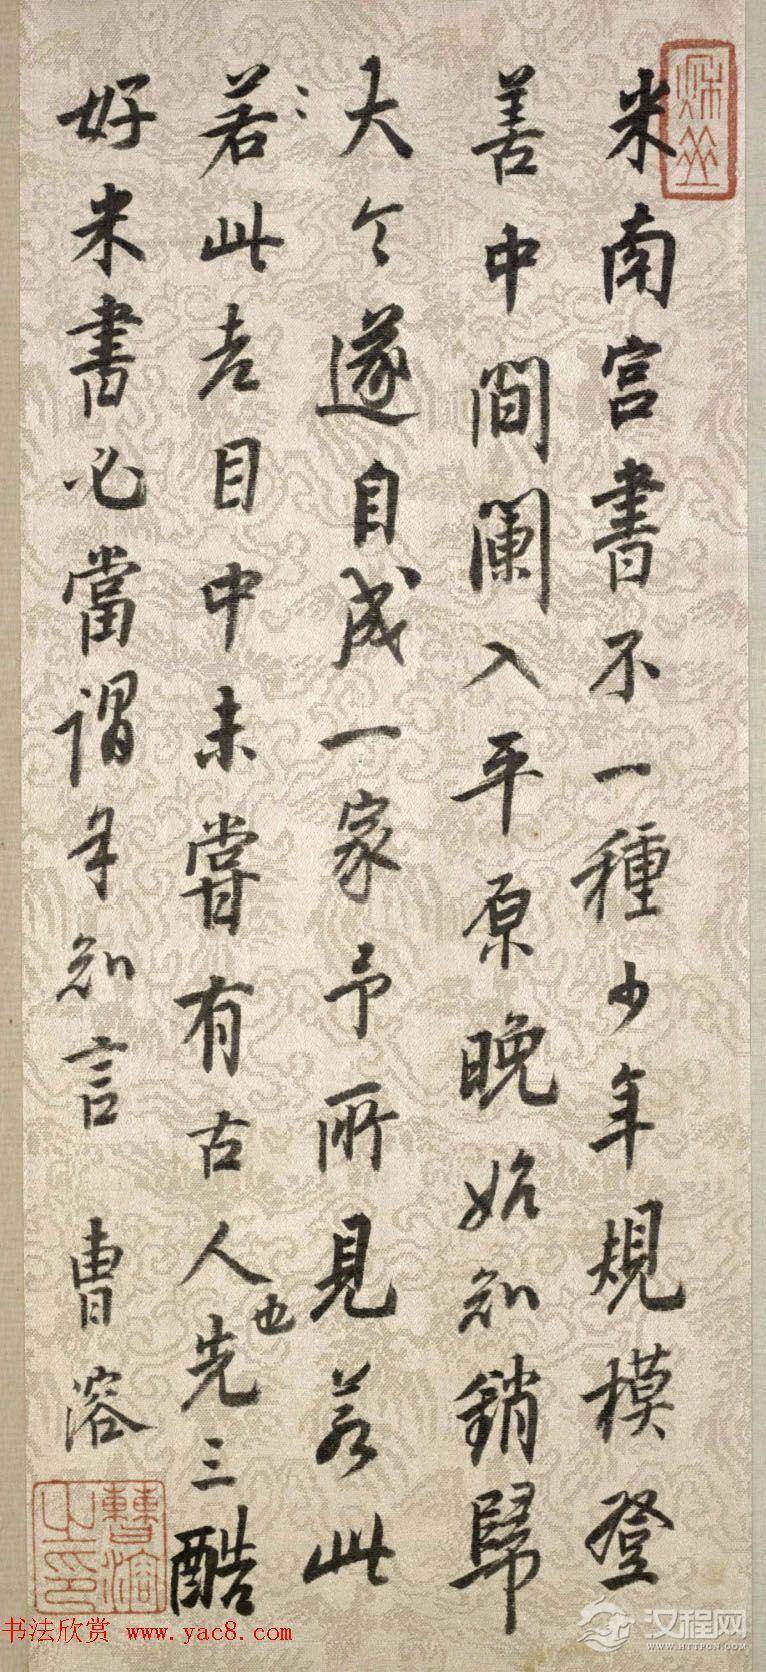 米南宫書不一種少年規模登
善中間闌入平原晚始知銷歸
大令遂自成一家予所見若此
若此老目中未嘗有古人也先三酷
好米書必當謂知言 曹溶
曹溶之印
书法欣赏 www.yac8.com
汉程网
WWW.HTTPCN.COM